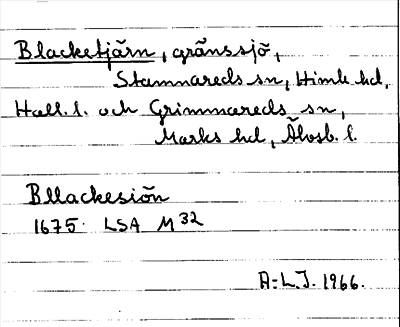 Blacketjärn, gränssjö,
Stamnareds sn, Himle hd,
Hall. l. och Grimmareds sn,
Marks hd, Älvsb. l.
Bllackesiön
1675. LSA M 32
A-L.J. 1966.